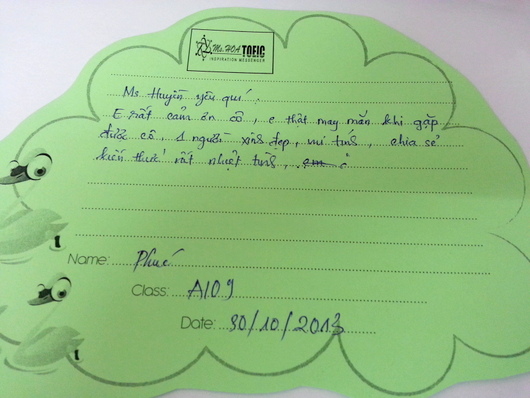 Ms. HOA TOEIC
INSPIRATION MESSENGER
Ms Huyền yêu quí,
E rất cảm ơn cô, e thật may mắn khi gặp
được cô, 1 người xinh đẹp, vui tính, chia sẻ
kiến thức rất nhiệt tình,
Name: Phúc
Class: A109
Date: 30/10/2013